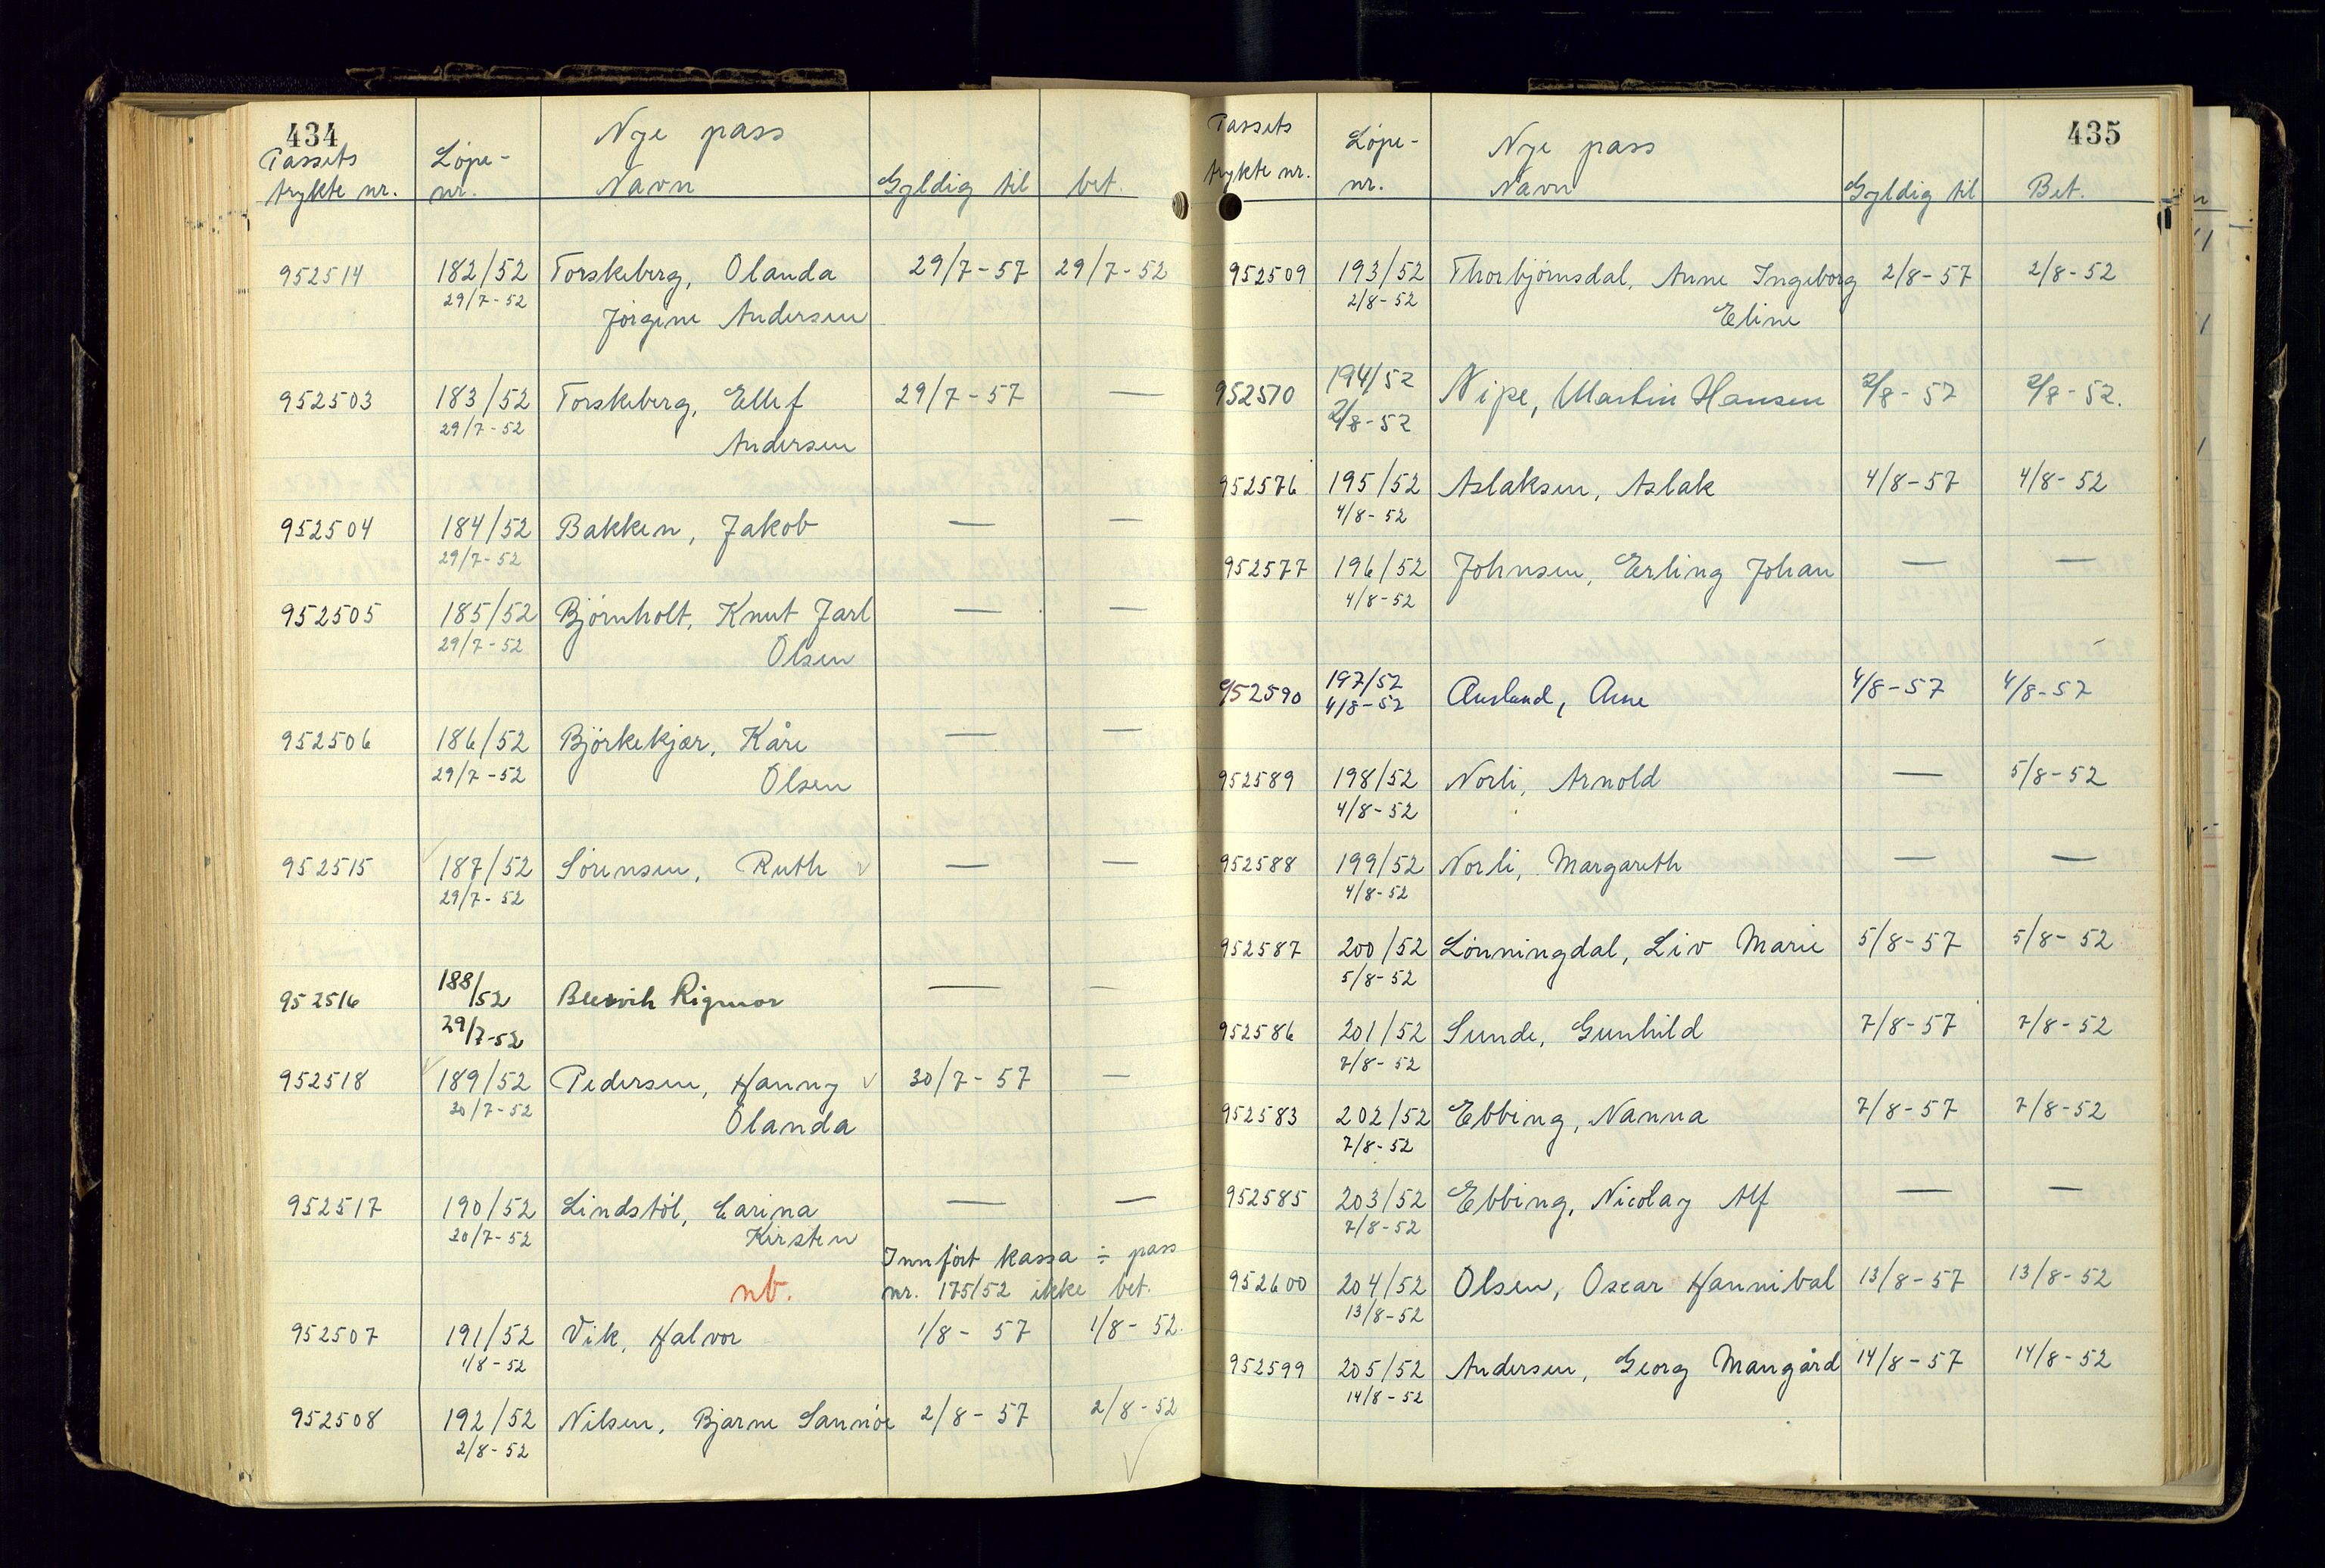 434
Passets
trykte nr.
Løpe-
nr.
Nye pass
Navn
Gyldig til
bet.
952514 182/52 Torskeberg, Olanda 29/7-57 29/7-52
29/7-52 Jørgine Andersen
952503 183/52 Torskeberg, Ellef 29/7-57 —
29/7-52 Andersen
952504 184/52 Bakken, Jakob — —
29/7-52
952505 185/52 Bjørnholt, Knut Jarl — —
29/7-52 Olsen
952506 186/52 Bjørkekjær, Kåre — —
29/7-52 Olsen
952515 187/52 Sørensen, Ruth — —
29/7-52
952516 188/52 Rigmor — —
29/7-52
952518 189/52 Pedersen, Hanny 30/7-57 —
30/7-52 Olanda
952517 190/52 Lindstøl, Carina — —
30/7-52 Kirsten
Innført kassa ÷ pass
nb. nr. 175/52 ikke bet.
952507 191/52 Vik, Halvor 1/8-57 1/8-52.
1/8-52
952508 192/52 Nilsen, Bjarne Sannøe 2/8-57 2/8-52
2/8-52
435
Passets
trykte nr.
Løpe-
nr.
Nye pass
Navn
Gyldig til
Bet.
952509 193/52 Thorbjørnsdal, Anne Ingeborg 2/8-57 2/8-52
2/8-52 Eline
952510 194/52 Nipe, Martin Hansen 2/8-57 2/8-52.
2/8-52
952576 195/52 Aslaksen, Aslak 4/8-57 4/8-52
4/8-52
952577 196/52 Johnsen, Erling Johan — —
4/8-52
952590 197/52 Ausland, Arne 4/8-57 4/8-52
4/8-52
952589 198/52 Norli, Arnold — 5/8-52
4/8-52
952588 199/52 Norli, Margareth — —
4/8-52
952587 200/52 Lønningdal, Liv Marie 5/8-57 5/8-52
5/8-52
952586 201/52 Sunde, Gunhild 7/8-57 7/8-52
7/8-52
952583 202/52 Ebbing, Nanna 7/8-57 7/8-52
7/8-52
952585 203/52 Ebbing, Nicolay Alf — —
7/8-52
952600 204/52 Olsen, Oscar Hannibal 13/8-57 13/8-52
13/8-52
952599 205/52 Andersen, Georg Mangård 14/8-57 14/8-52
14/8-52